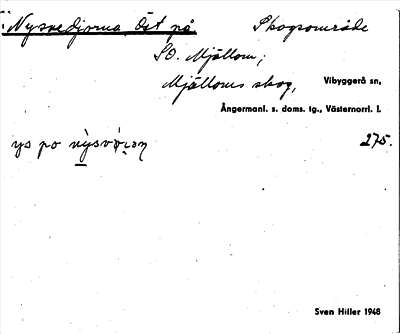 : Nysvedjorna, Öst på Skogsområde
SO. Mjällom;
Mjälloms skog, Vibyggerå sn,
Ångermanl. s. doms. tg., Västernorrl. l.
275.
Sven Hiller 1948